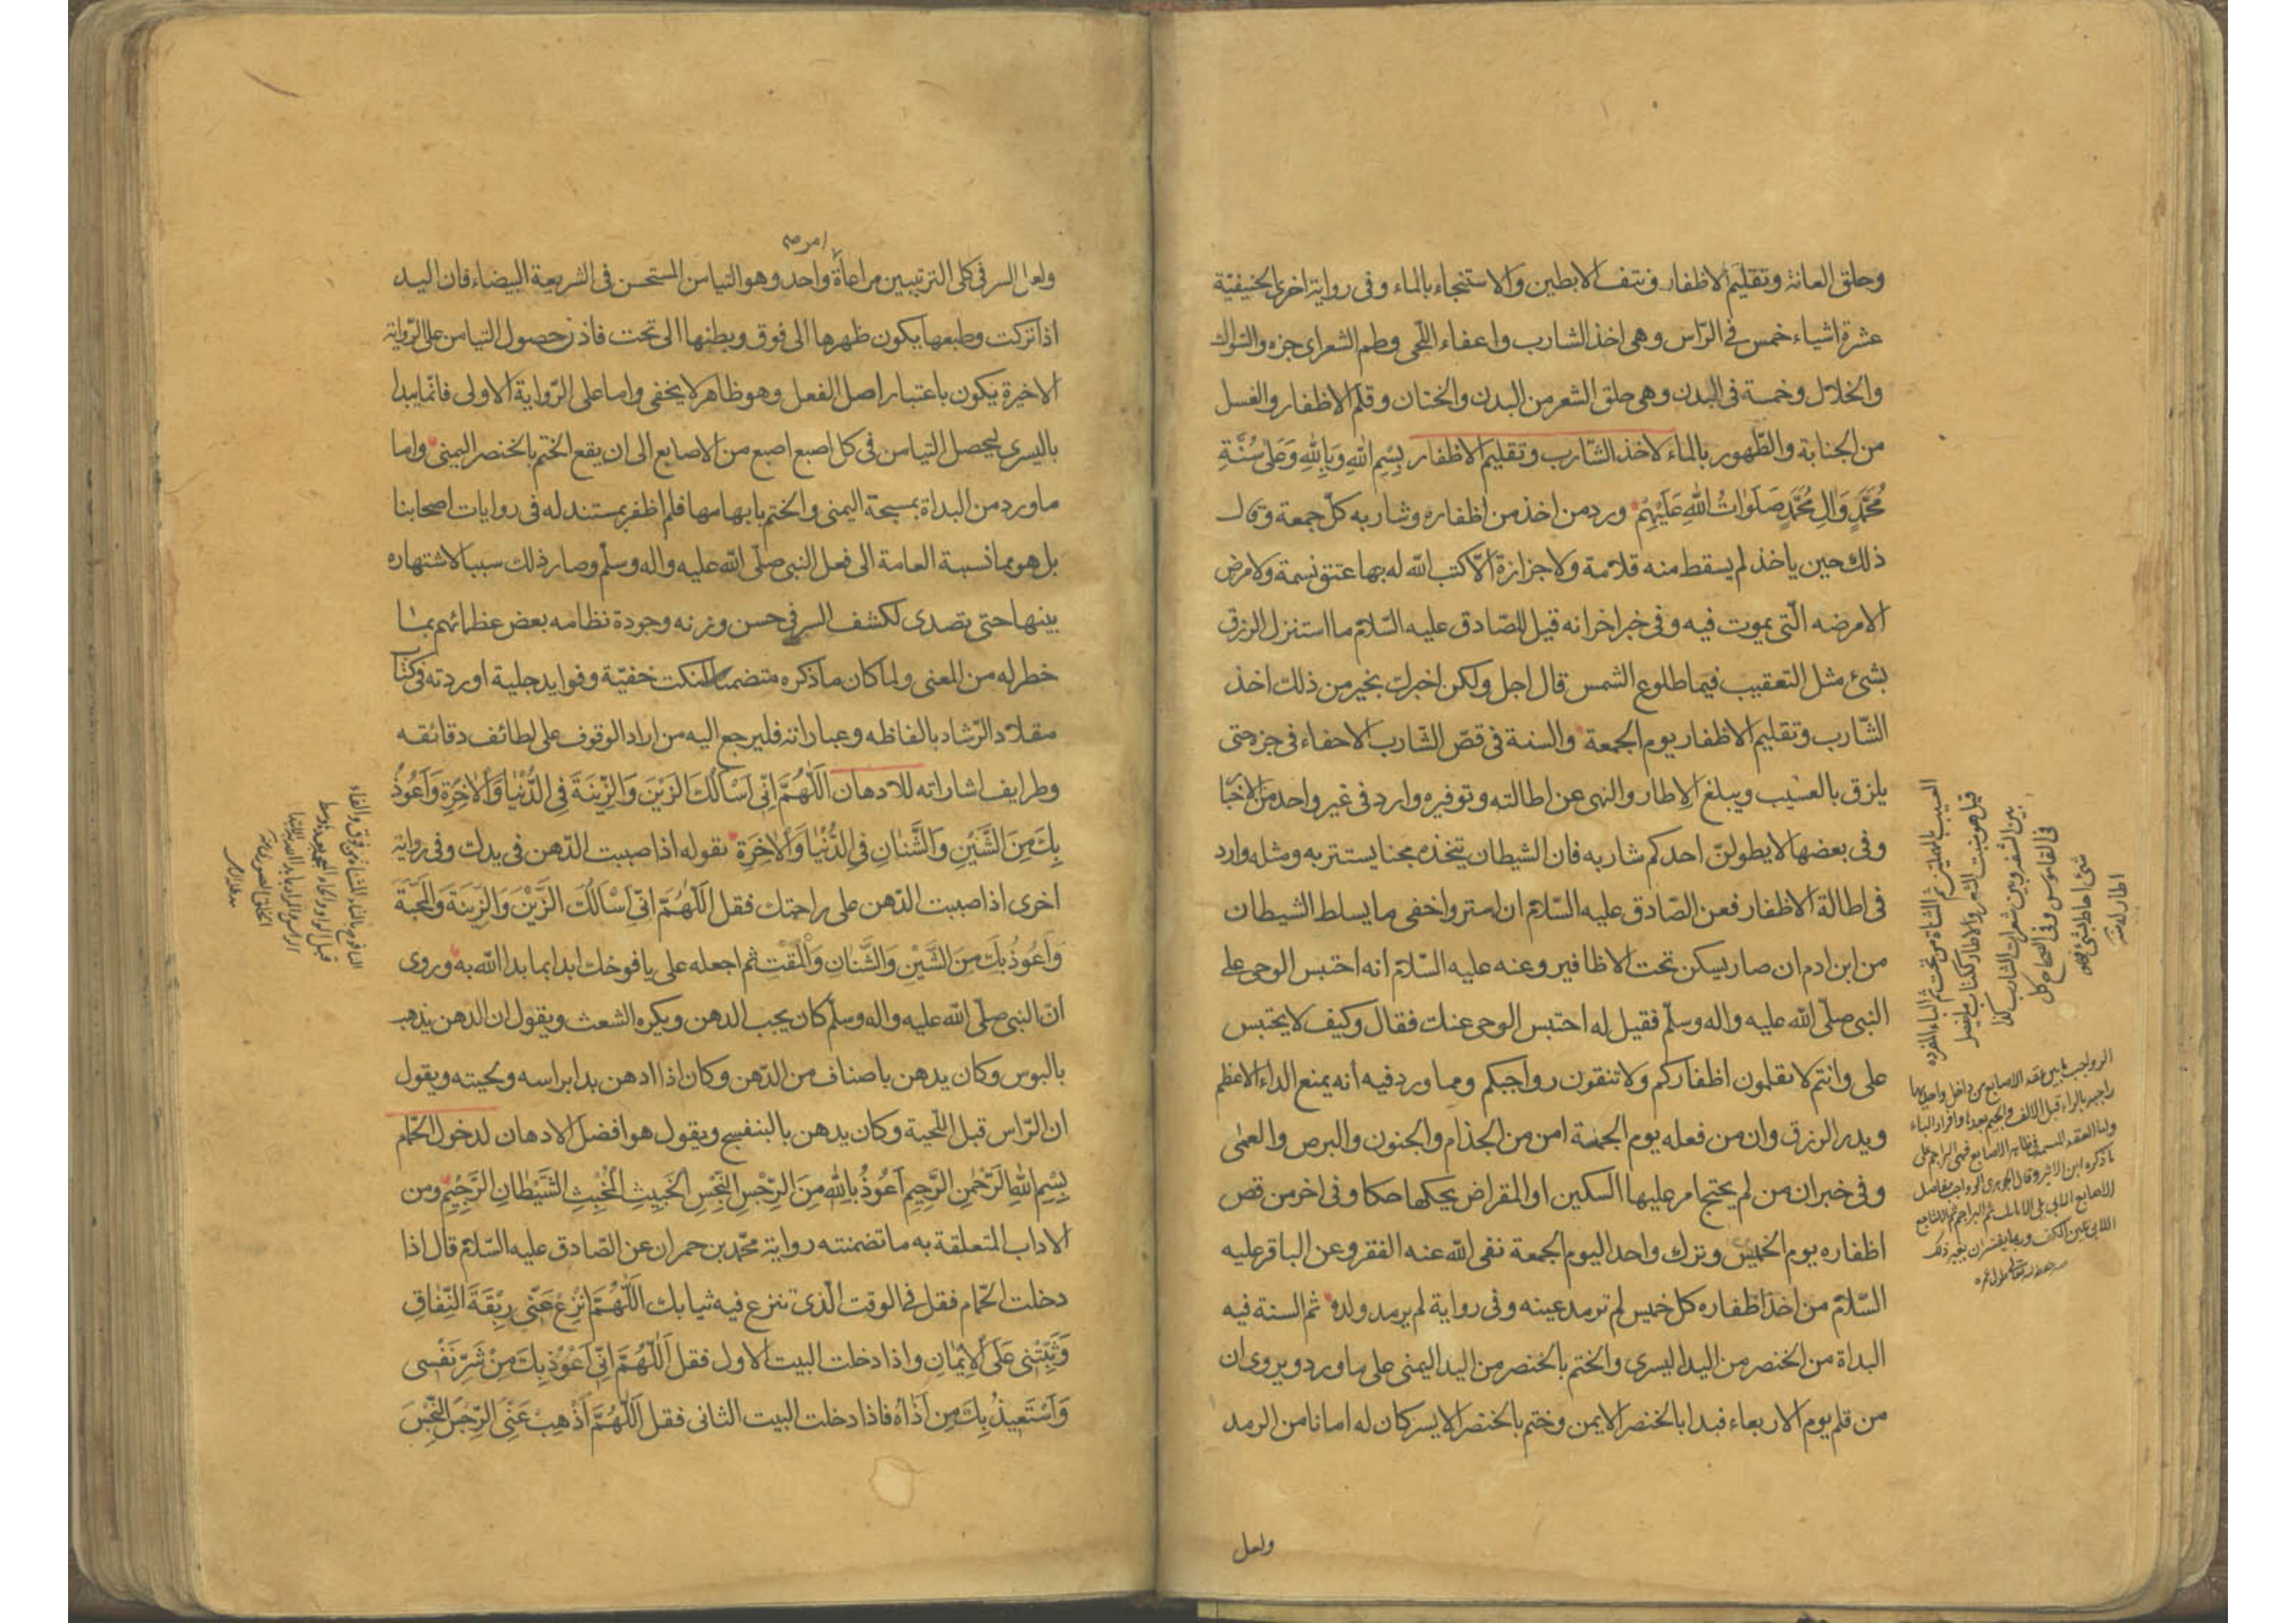 وحلق العانة وتقليم الاظفار ونتف الابطين والاستنجاء بالماء وفى رواية اخرى الحنيفيّة
عشرة اشياء خمس فى الرّاس وهى اخذ الشارب واعفاء اللّحى وطم الشعر اى جزه والسّواك
والخلال وخمسة فى البدن وهى حلق الشعر من البدن والختان وقلم الاظفار والغسل
من الجنابة والطّهور بالماء لاخذ الشّارب وتقليم الاظفار بِسْمِ اللهِ وَبِاللهِ وَعَلى سُنَّةِ
مُحَمَّدٍ وَالِ مُحَمَّدٍ صَلَوٰاتُ اللهِ عَلَيْهِمْ ورد من اخذ من اظفاره وشاربه كلّ جمعة وقال
ذلك حين ياخذ لم يسقط منه قلامة ولا جزازة الّا كتب الله له بها عتق نسمة ولا مرض
الا مرضه الّتى يموت فيه وفى خبر اخر انه قيل للصّادق عليه السّلام ما استنزل الرزق
بشئ مثل التعقيب فيما طلوع الشمس قال اجل ولكن اخبرك بخير من ذلك اخذ
الشّارب وتقليم الاظفار يوم الجمعة والسنة فى قصّ الشّارب الاحفاء فى جزه حتى
يلزق بالعسيب ويبلغ الاطار والنهى عن اطالته وتوفيره وارد فى غير واحد من الاخبا
وفى بعضها لا يطولنّ احدكم شاربه فان الشيطان يتخذه مجنا يستتر به ومثله وارد
فى اطالة الاظفار فعن الصّادق عليه السّلام ان استر واخفى ما يسلط الشيطان
من ابن ادم ان صار يسكن تحت الاظافير وعنه عليه السّلام انه احتبس الوحى على
النبى صلّى الله عليه واله وسلّم فقيل له احتبس الوحى عنك فقال وكيف لا يحتبس
على وانتم لا تقلمون اظفاركم ولا تنقون رواجبكم ومما ورد فيه أنه يمنع الداء الاعظم
ويدر الرزق وان من فعله يوم الجمعة امن من الجذام والجنون والبرص والعمى
وفى خبر ان من لم يحتج امر عليها السكين او المقراض يحكها حكا وفى اخر من قص
اظفاره يوم الخميس وترك واحدا ليوم الجمعة نفى الله عنه الفقر وعن الباقر عليه
السّلام من اخذ اظفاره كل خميس لم ترمد عينه وفى رواية لم يرمد ولده ثم السنة فيه
البداة من الخنصر من اليد اليسرى والختم بالخنصر من اليد اليمنى على ما ورد ويروى ان
من قلم يوم الاربعاء فبدا بالخنصر الايمن وختم بالخنصر الايسر كان له امانا من الرمد
ولعل
العسيب بالمهملتين ثم المثناة من تحت ثم الباء المفردة
قيل هو منبت الشعر والاطار ككتاب ما يفصل
بين الشفة وبين شعرات الشارب كذا
فى القاموس وفى الصحاح كل
شئ احاط بشئ فهو
اطار له
الرواجب ما بين عقد الاصابع من داخل واحدها
راجبه بالراء قبل الالف والجيم بعدها وافراد الباء
ما ذكره ابن الاثير وقال الجوهرى الرواجب مفاصل
الاصابع اللاتى تلى الانامل ثم البراجم ثم الاشاجع
اللاتى تلين الكف وربما يفسران بغير ذلك
امر صه
ولعل السر فى كلى الترتيبين مراعاة واحد وهو التيامن المستحسن فى الشريعة البيضاء فان اليد
اذا تركت وطبعها يكون ظهرها الى فوق وبطنها الى تحت فاذن حصول التيامن على الرّواية
الاخيرة يكون باعتبار اصل الفعل وهو ظاهر لا يخفى واما على الرّواية الاولى فانّما يبدا
باليسرى ليحصل التيامن فى كل اصبع اصبع من الاصابع الى ان يقع الختم بالخنصر اليمنى واما
ما ورد من البداة بمسبحة اليمنى والختم بابهامها فلم اظفر بمستند له فى روايات اصحابنا
بل هو مما نسبة العامة الى فعل النبى صلّى الله عليه واله وسلّم وصار ذلك سببا لاشتهاره
بينها حتى تصدى لكشف السر فى حسن وزنه وجودة نظامه بعض عظمائهم بما
خطر له من المعنى ولما كان ما ذكره متضمنا لنكت خفيّة وفوايد جلية اوردته فى كتا
مقلاد الرّشاد بالفاظه وعباراته فليرجع اليه من اراد الوقوف على لطائف دقائقه
وطرايف اشاراته للادهان اَللّٰهُمَّ اِنّى اَسْاَلُكَ الزَّيْنَ وَالزِّينَةَ فِى الدُّنْيٰا وَالْاٰخِرَةِ وَاَعُوذُ
بِكَ مِنَ الشَّيْنِ وَالشَّنٰانِ فِى الدُّنْيٰا وَالْاٰخِرَةِ تقوله اذا صببت الدّهن فى يدك وفى رواية
اخرى اذا صببت الدّهن على راحتك فقل اَللّٰهُمَّ اِنّى اَسْاَلُكَ الزَّيْنَ وَالزِّينَةَ وَالْمَحَبَّةَ
وَاَعُوذُ بِكَ مِنَ الشَّيْنِ وَالشَّنٰانِ وَالْمَقْتِ ثم اجعله على يافوخك ابدا بما بدا الله به وروى
انّ النبى صلّى الله عليه واله وسلّم كان يحب الدهن ويكره الشعث ويقول ان الدهن يذهب
بالبوس وكان يدهن باصناف من الدّهن وكان اذا ادهن بدا براسه ولحيته ويقول
ان الرّاس قبل اللّحية وكان يدهن بالبنفسج ويقول هو افضل الادهان لدخول الحّمام
بِسْمِ اللهِ الرَّحْمٰنِ الرَّحِيمِ اَعُوذُ بِاللهِ مِنَ الرِّجْسِ النِّجْسِ الْخَبِيثِ الْمُخْبِثِ الشَّيْطٰانِ الرَّجِيْمِ ومن
الاداب المتعلقة به ما تضمنته رواية محمّد بن حمران عن الصّادق عليه السّلام قال اذا
دخلت الحّمام فقل فى الوقت الّذى تنزع فيه ثيابك اَللّٰهُمَّ انْزَعْ عَنّى رِبْقَةَ النِّفٰاقِ
وَثَبِّتْنى عَلَى الْاِيمٰانِ واذا دخلت البيت الاول فقل اَللّٰهُمَّ اِنّى اَعُوْذُ بِكَ مِنْ شَرِّ نَفْسى
وَاَسْتَعِيذُ بِكَ مِنْ اَذٰاهُ فاذا دخلت البيت الثانى فقل اَللّٰهُمَّ اَذْهِبْ عَنّى الرِّجْسَ النِّجْسَ